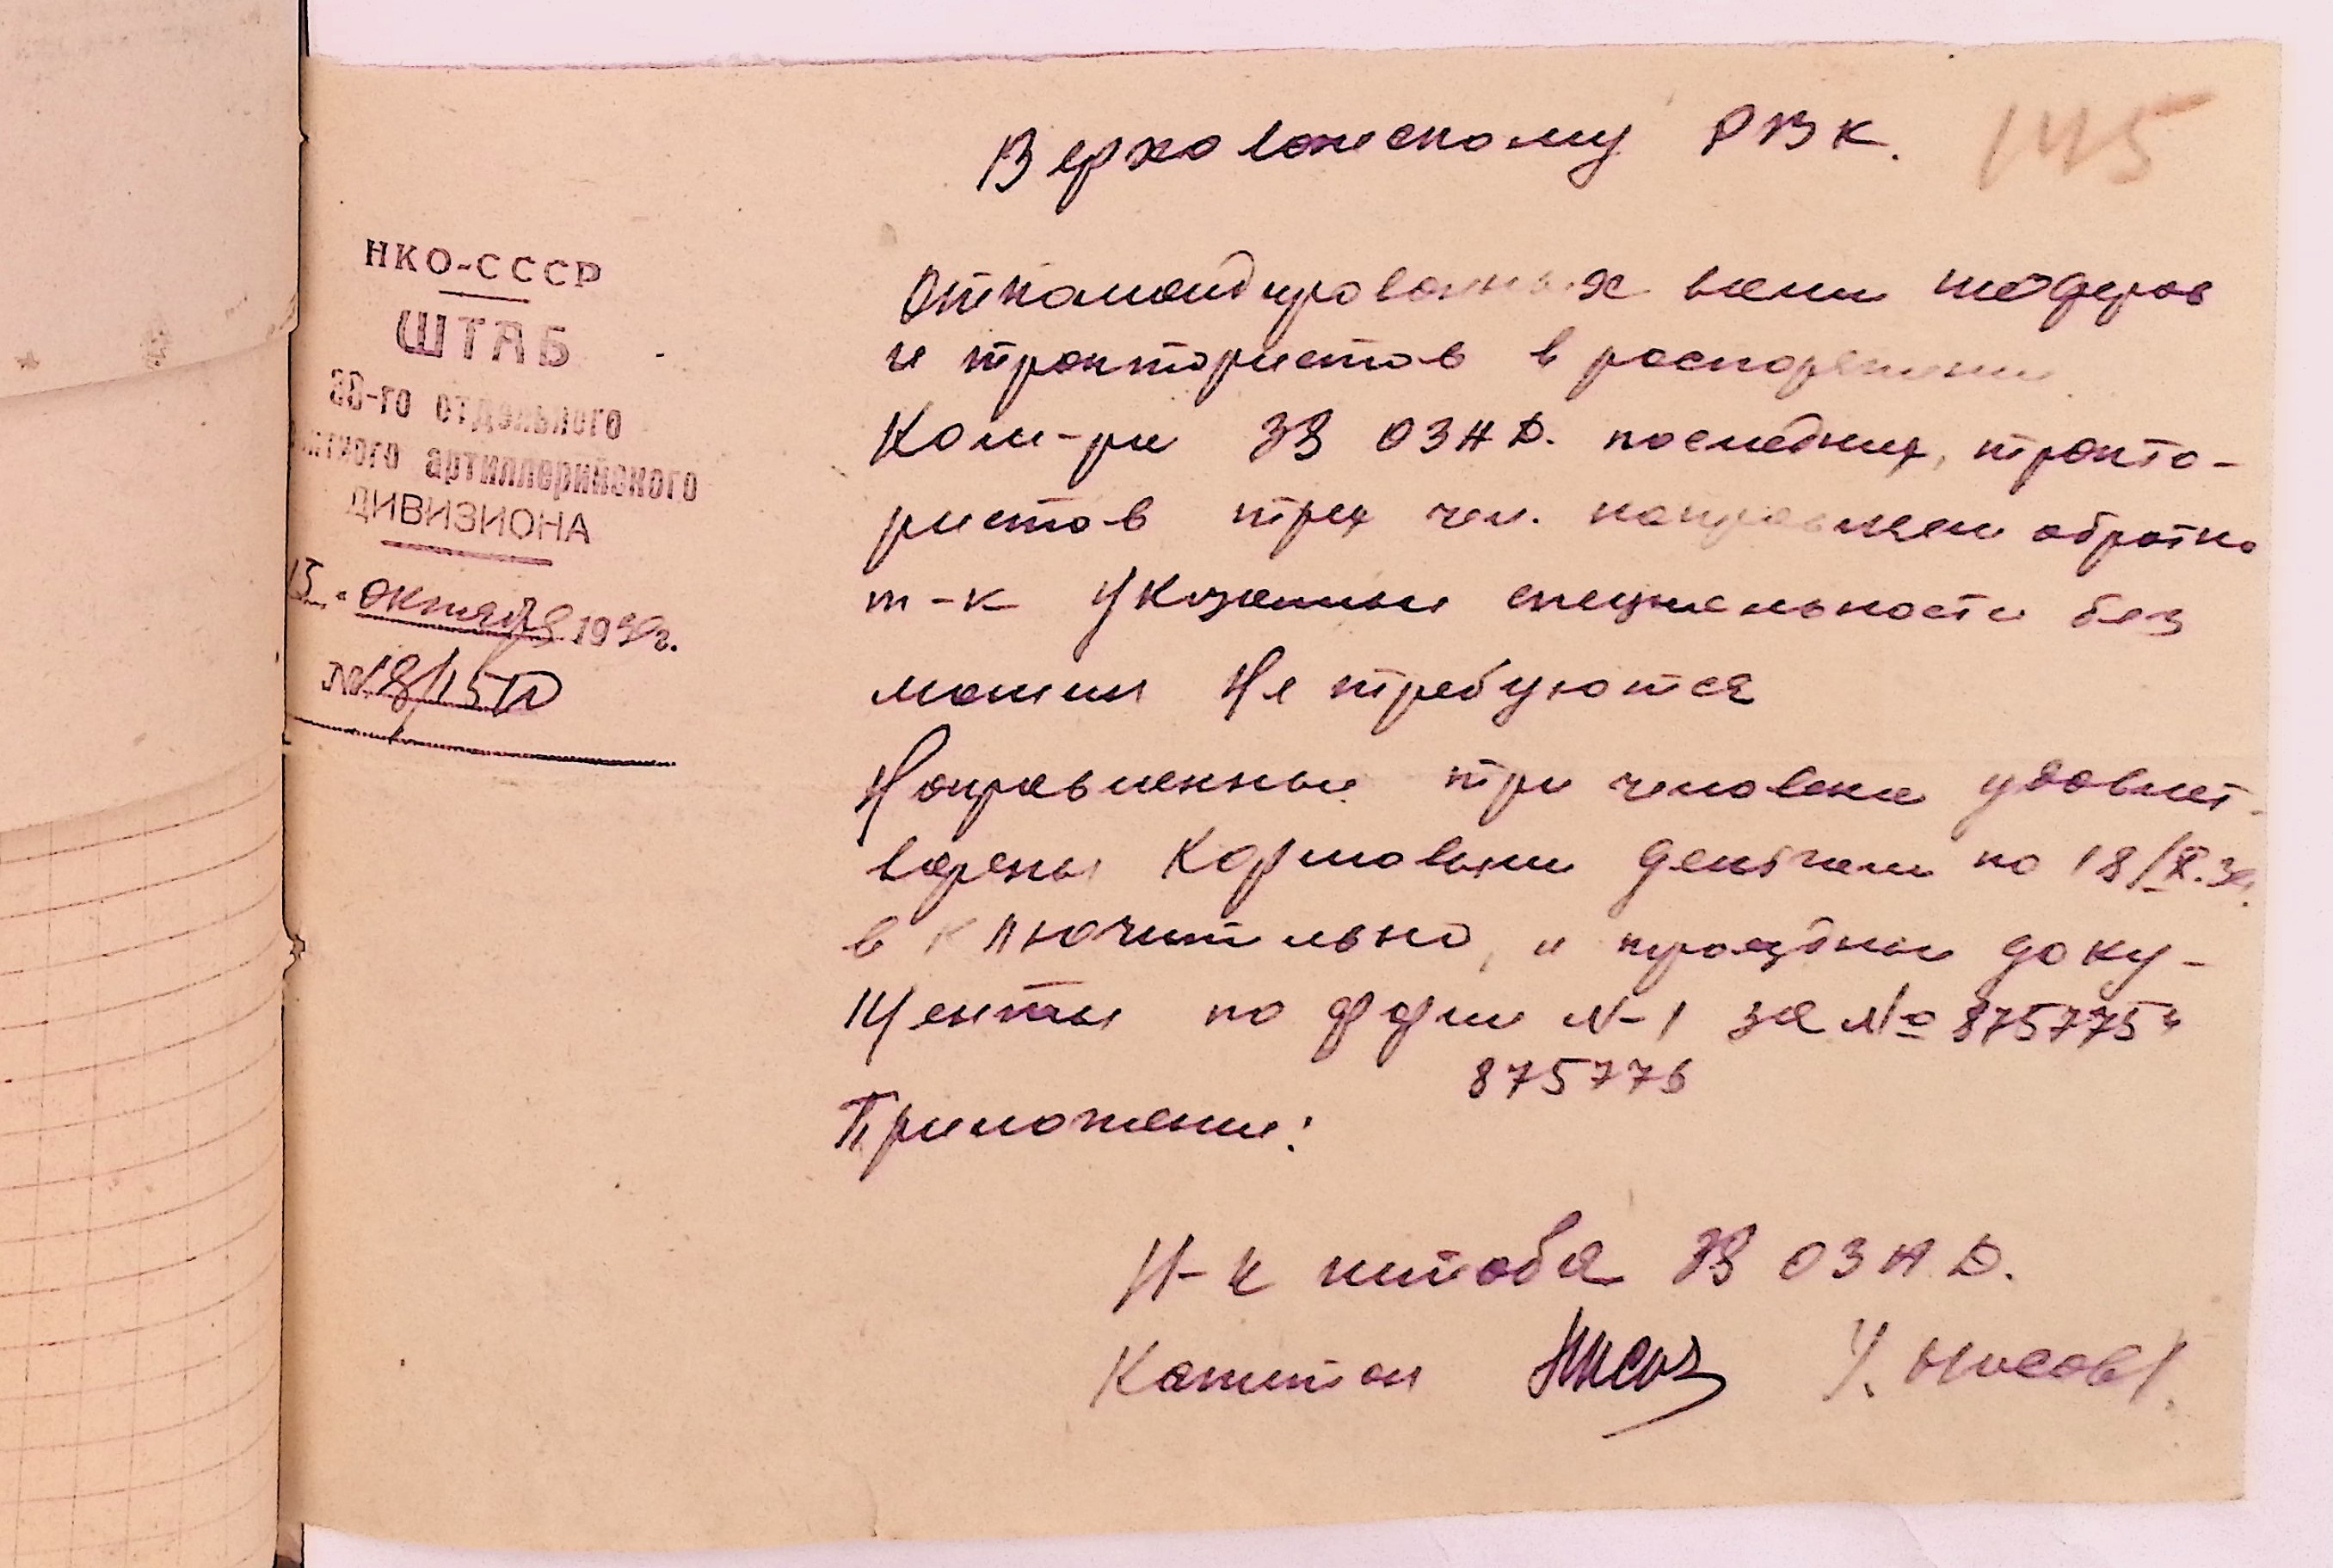 145
Верховажскому РВК.
НКО-СССР
ШТАБ
го отдельного
артиллерийского
ДИВИЗИОНА
15. октября 1939г.
№ 18/
Откомандированных вами шоферов
и трактористов в распоряжении
Ком-ри ЗЗ ОЗАД. последних, тракто-
ристов трех чел. направляем обратно
т-к указанные специальности без
машин не требуются
Направленные три человека удовлет-
ворены кормовыми деньгами по 18/X.39.
включительно, и проездные доку-
менты по форм N-1 за № 875775 и
875776
Приложение:
Н-к штаба ЗЗ ОЗАД.
Капитан /. Носов/.